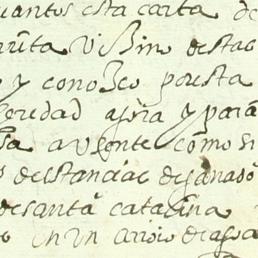 quantos esta carta de
Vezino destas
y conozco por esta
eredad agria y para
ausente como si
destancias de ganado
de santa catalina
en Un arroio de agua